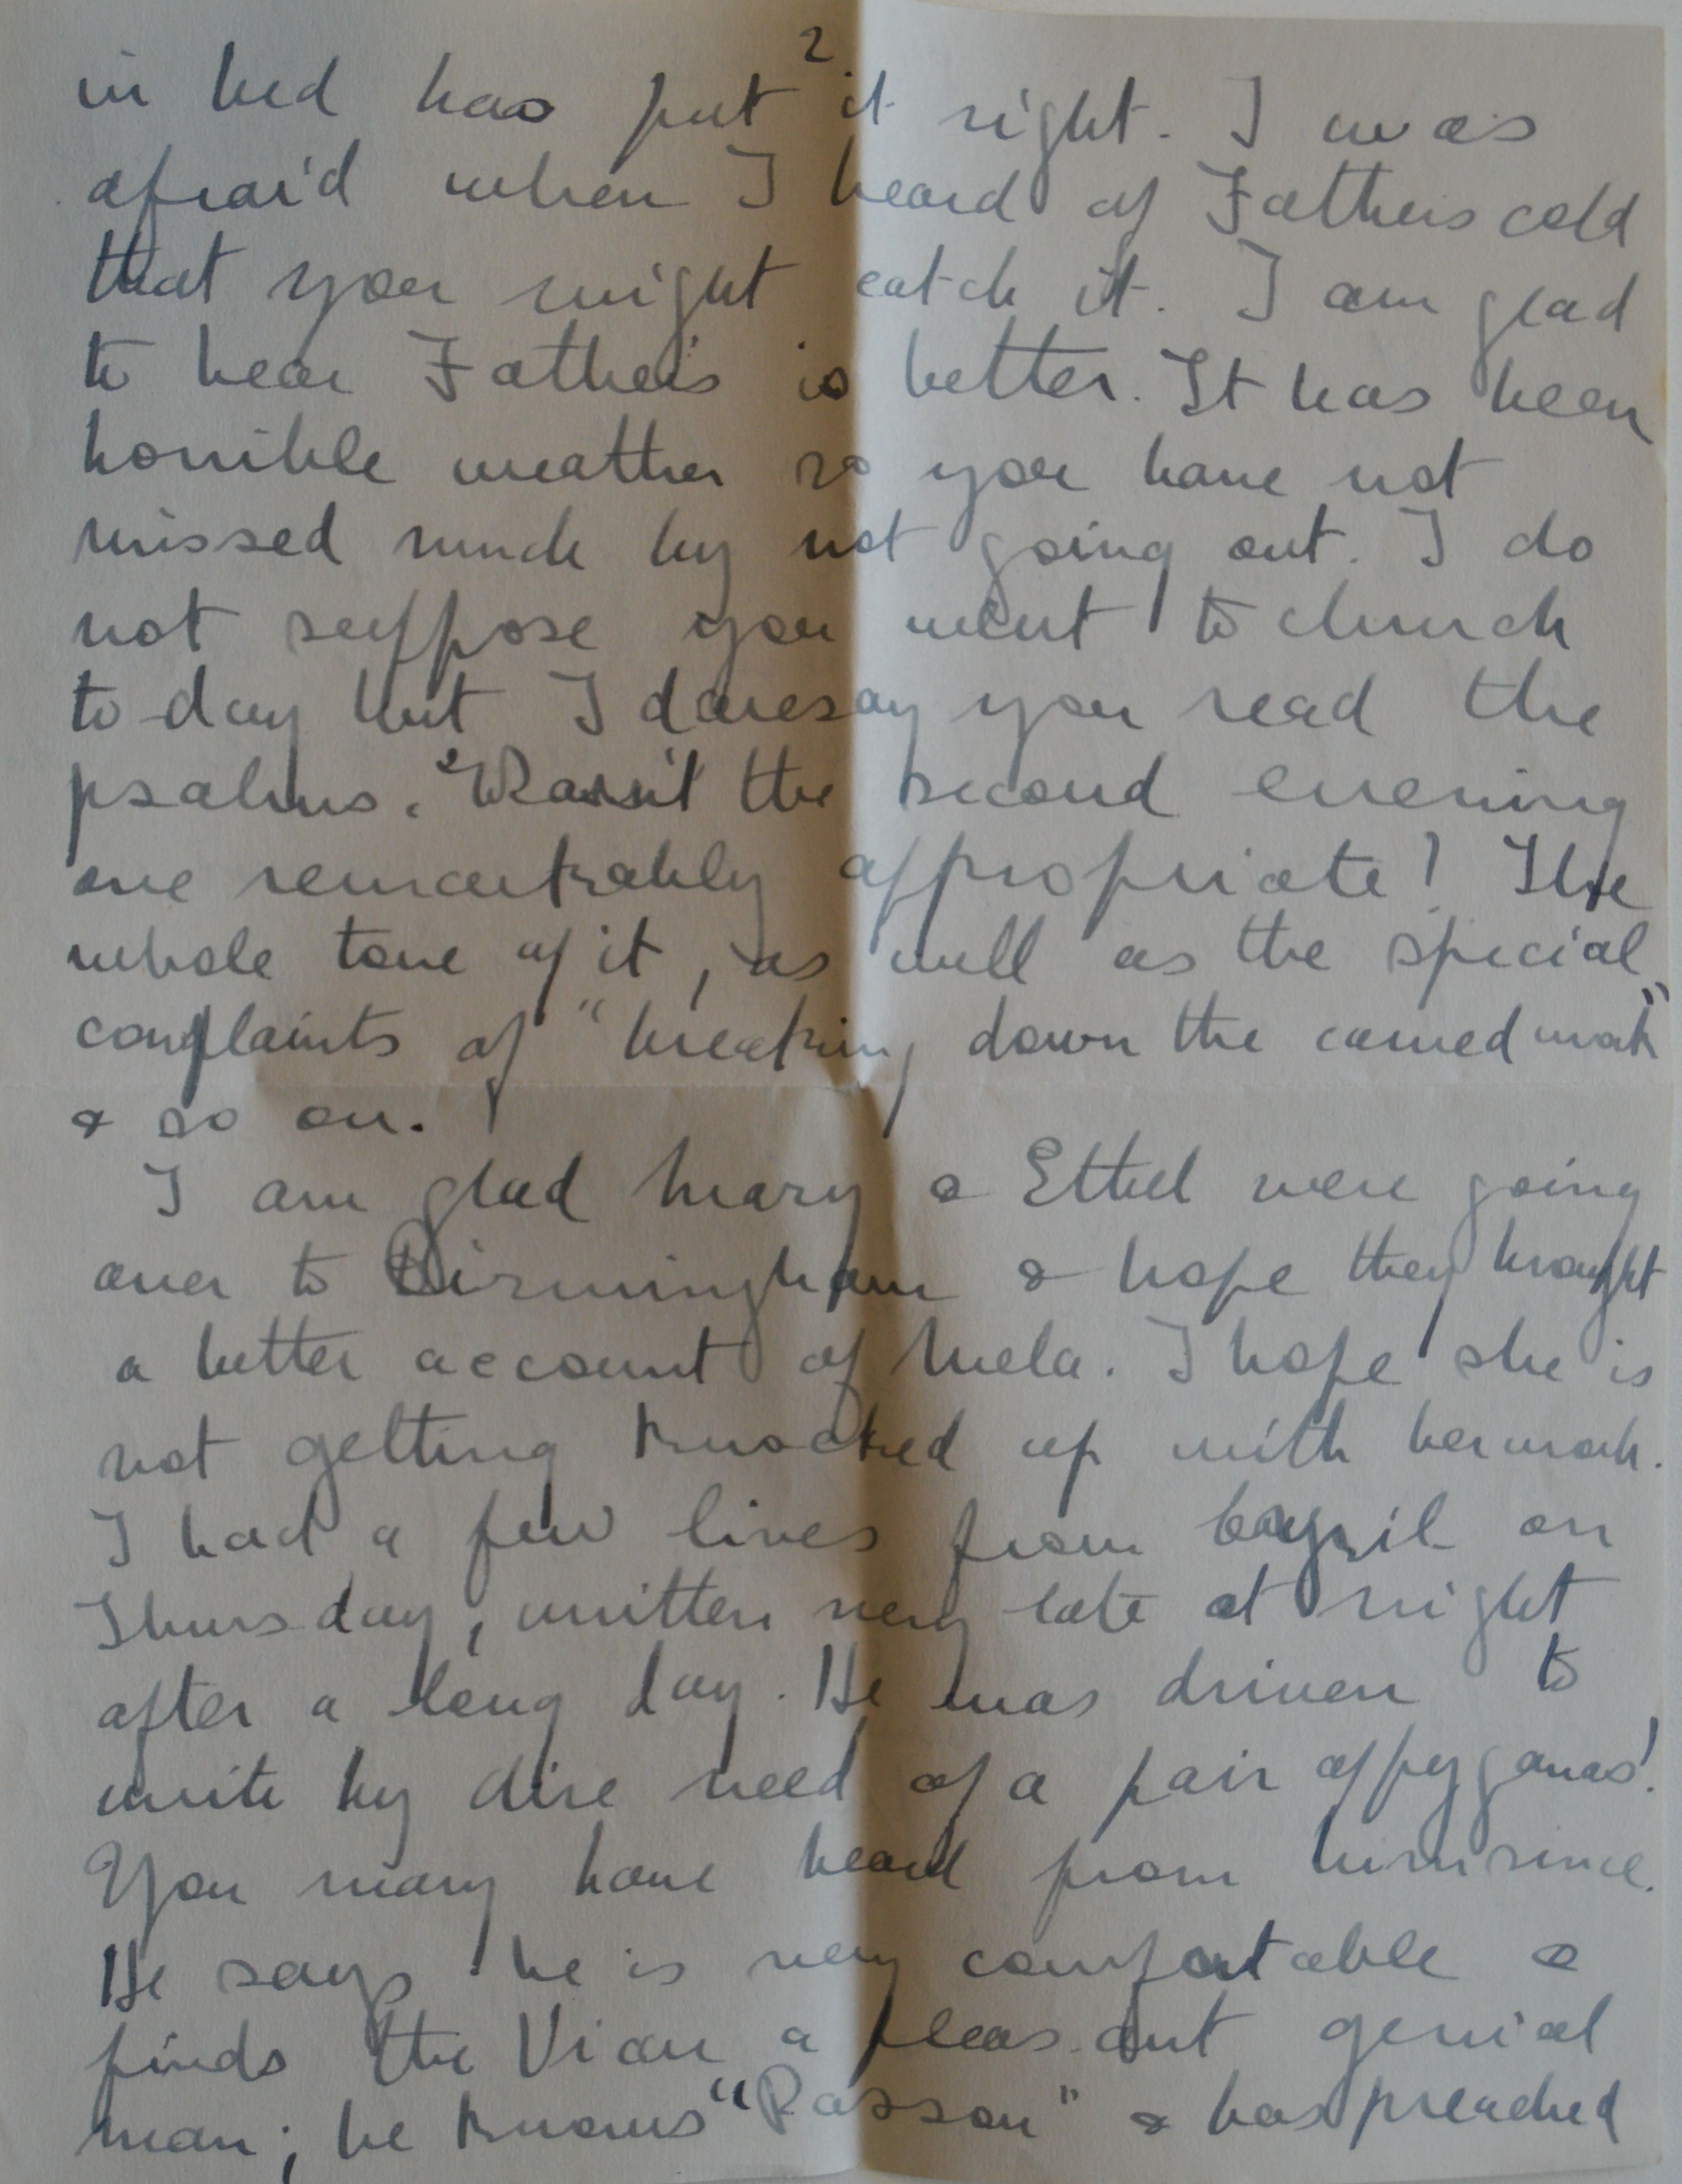 2
in bed has put it right. I was
afraid when I heard of Fathers cold
that you might catch it. I am glad
to hear Father's is better. It has been
horrible weather so you have not
missed much by not going out. I do
not suppose you went to church
to-day but I daresay you read the
psalms. Wasn't the second evening
one remarkably appropriate! The
whole tone of it, as well as the special
complaints of "breaking down the carved work"
& so on.
I am glad Mary & Ethel were going
over to Birmingham & hope they brought
a better account of Mela. I hope she is
not getting knocked up with her work.
I had a few lines from Cyril on
Thursday, written very late at night
after a long day. He was driven to
write by dire need of a pair of pyjamas!
You may have heard from him since.
He says he is very comfortable &
finds the Vicar a pleasant genial
man; he knows "Passon" & has preached